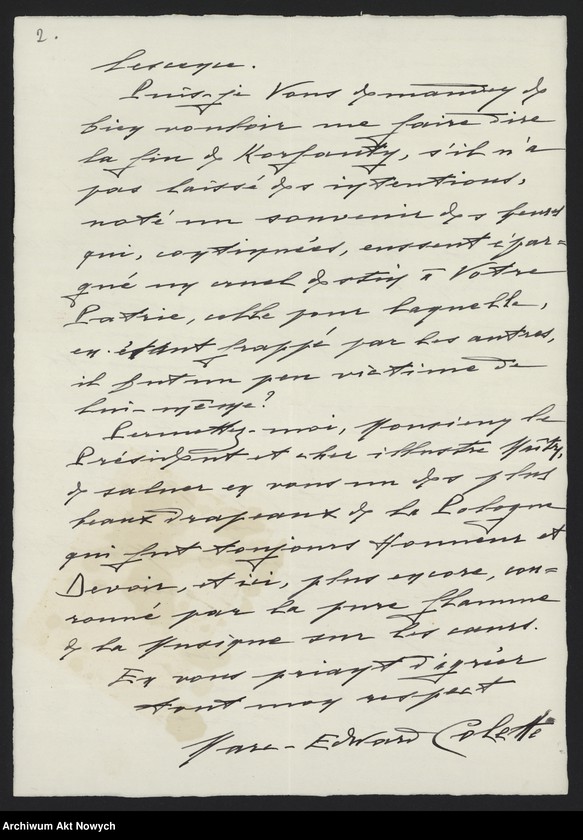 2.
Puis-je Vous demander de
bien vouloir me faire dire
la fin de Korfanty, s'il n'a
pas laissé des intentions,
noté un souvenir des heures
qui, continuées, eussent épar=
gné un cruel destin à Votre
Patrie, celle pour laquelle,
en étant frappé par les autres,
il fut un peu victime de
lui-même?
Permettez-moi, Monsieur le
Président et cher illustre Maître,
de saluer en vous un des plus
beaux drapeaux de la Pologne
qui fut toujours Honneur et
Devoir, et ici, plus encore, cou=
ronné par la pure flamme
de la Musique sur les cœurs.
En vous priant d'agréer
tout mon respect
Marc-Edward Colette
Archiwum Akt Nowych